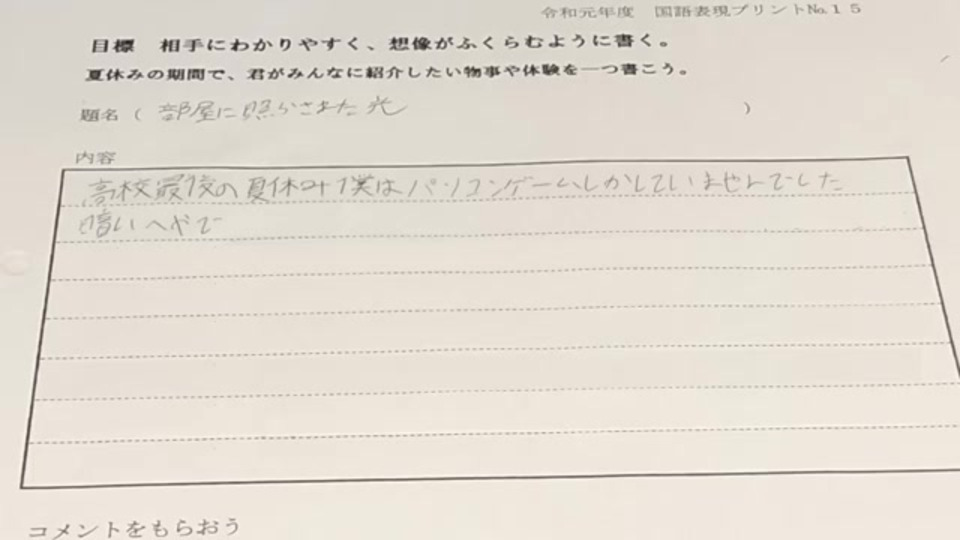 令和元年度　国語表現プリント№１５
目標　相手にわかりやすく、想像がふくらむように書く。
夏休みの期間で、君がみんなに紹介したい物事や体験を一つ書こう。
題名（ 部屋に照らされた光 ）
内容
高校最後の夏休み僕はパソコンゲームしかしていませんでした
暗いへやで
コメントをもらおう